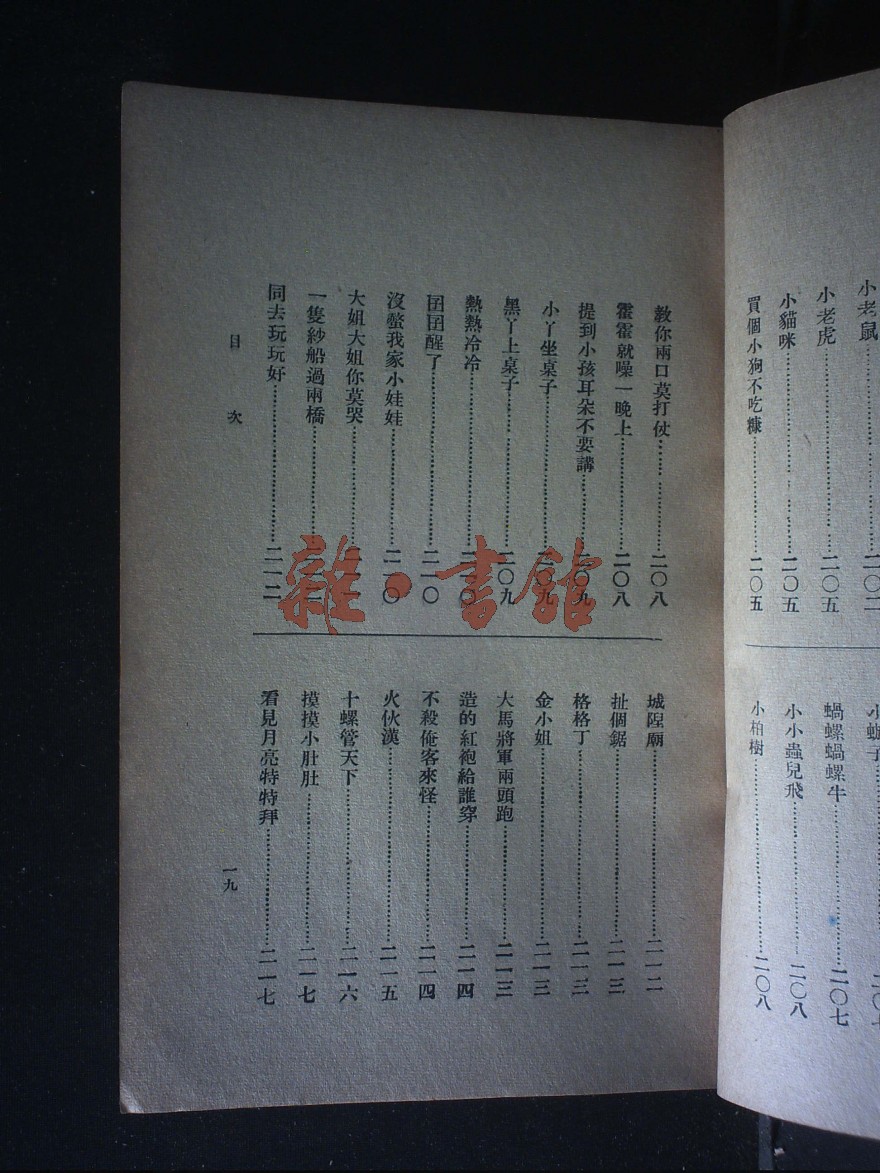 小老鼠
小老虎……二〇五
小貓咪……二〇五
買個小狗不吃糠……二〇五
蝸螺蝸螺牛……二〇七
小小蟲兒飛……二〇八
小柏樹……二〇八
教你兩口莫打仗……二〇八
霍霍就噪一晚上……二〇八
提到小孩耳朵不要講……二〇九
小丫坐桌子……二〇九
黑丫上桌子……二〇九
熱熱冷冷……二一〇
囝囝醒了……二一〇
沒螫我家小娃娃……二一〇
大姐大姐你莫哭
一隻紗船過兩橋
同去玩玩好……二一二
城隍廟……二一二
扯個鋸……二一三
格格丁……二一三
金小姐……二一三
大馬將軍兩頭跑……二一三
造的紅袍給誰穿……二一四
不殺俺客來怪……二一四
火伙漢……二一五
十螺管天下……二一六
摸摸小肚肚……二一七
看見月亮特特拜……二一七
目次
一九
雜·書館